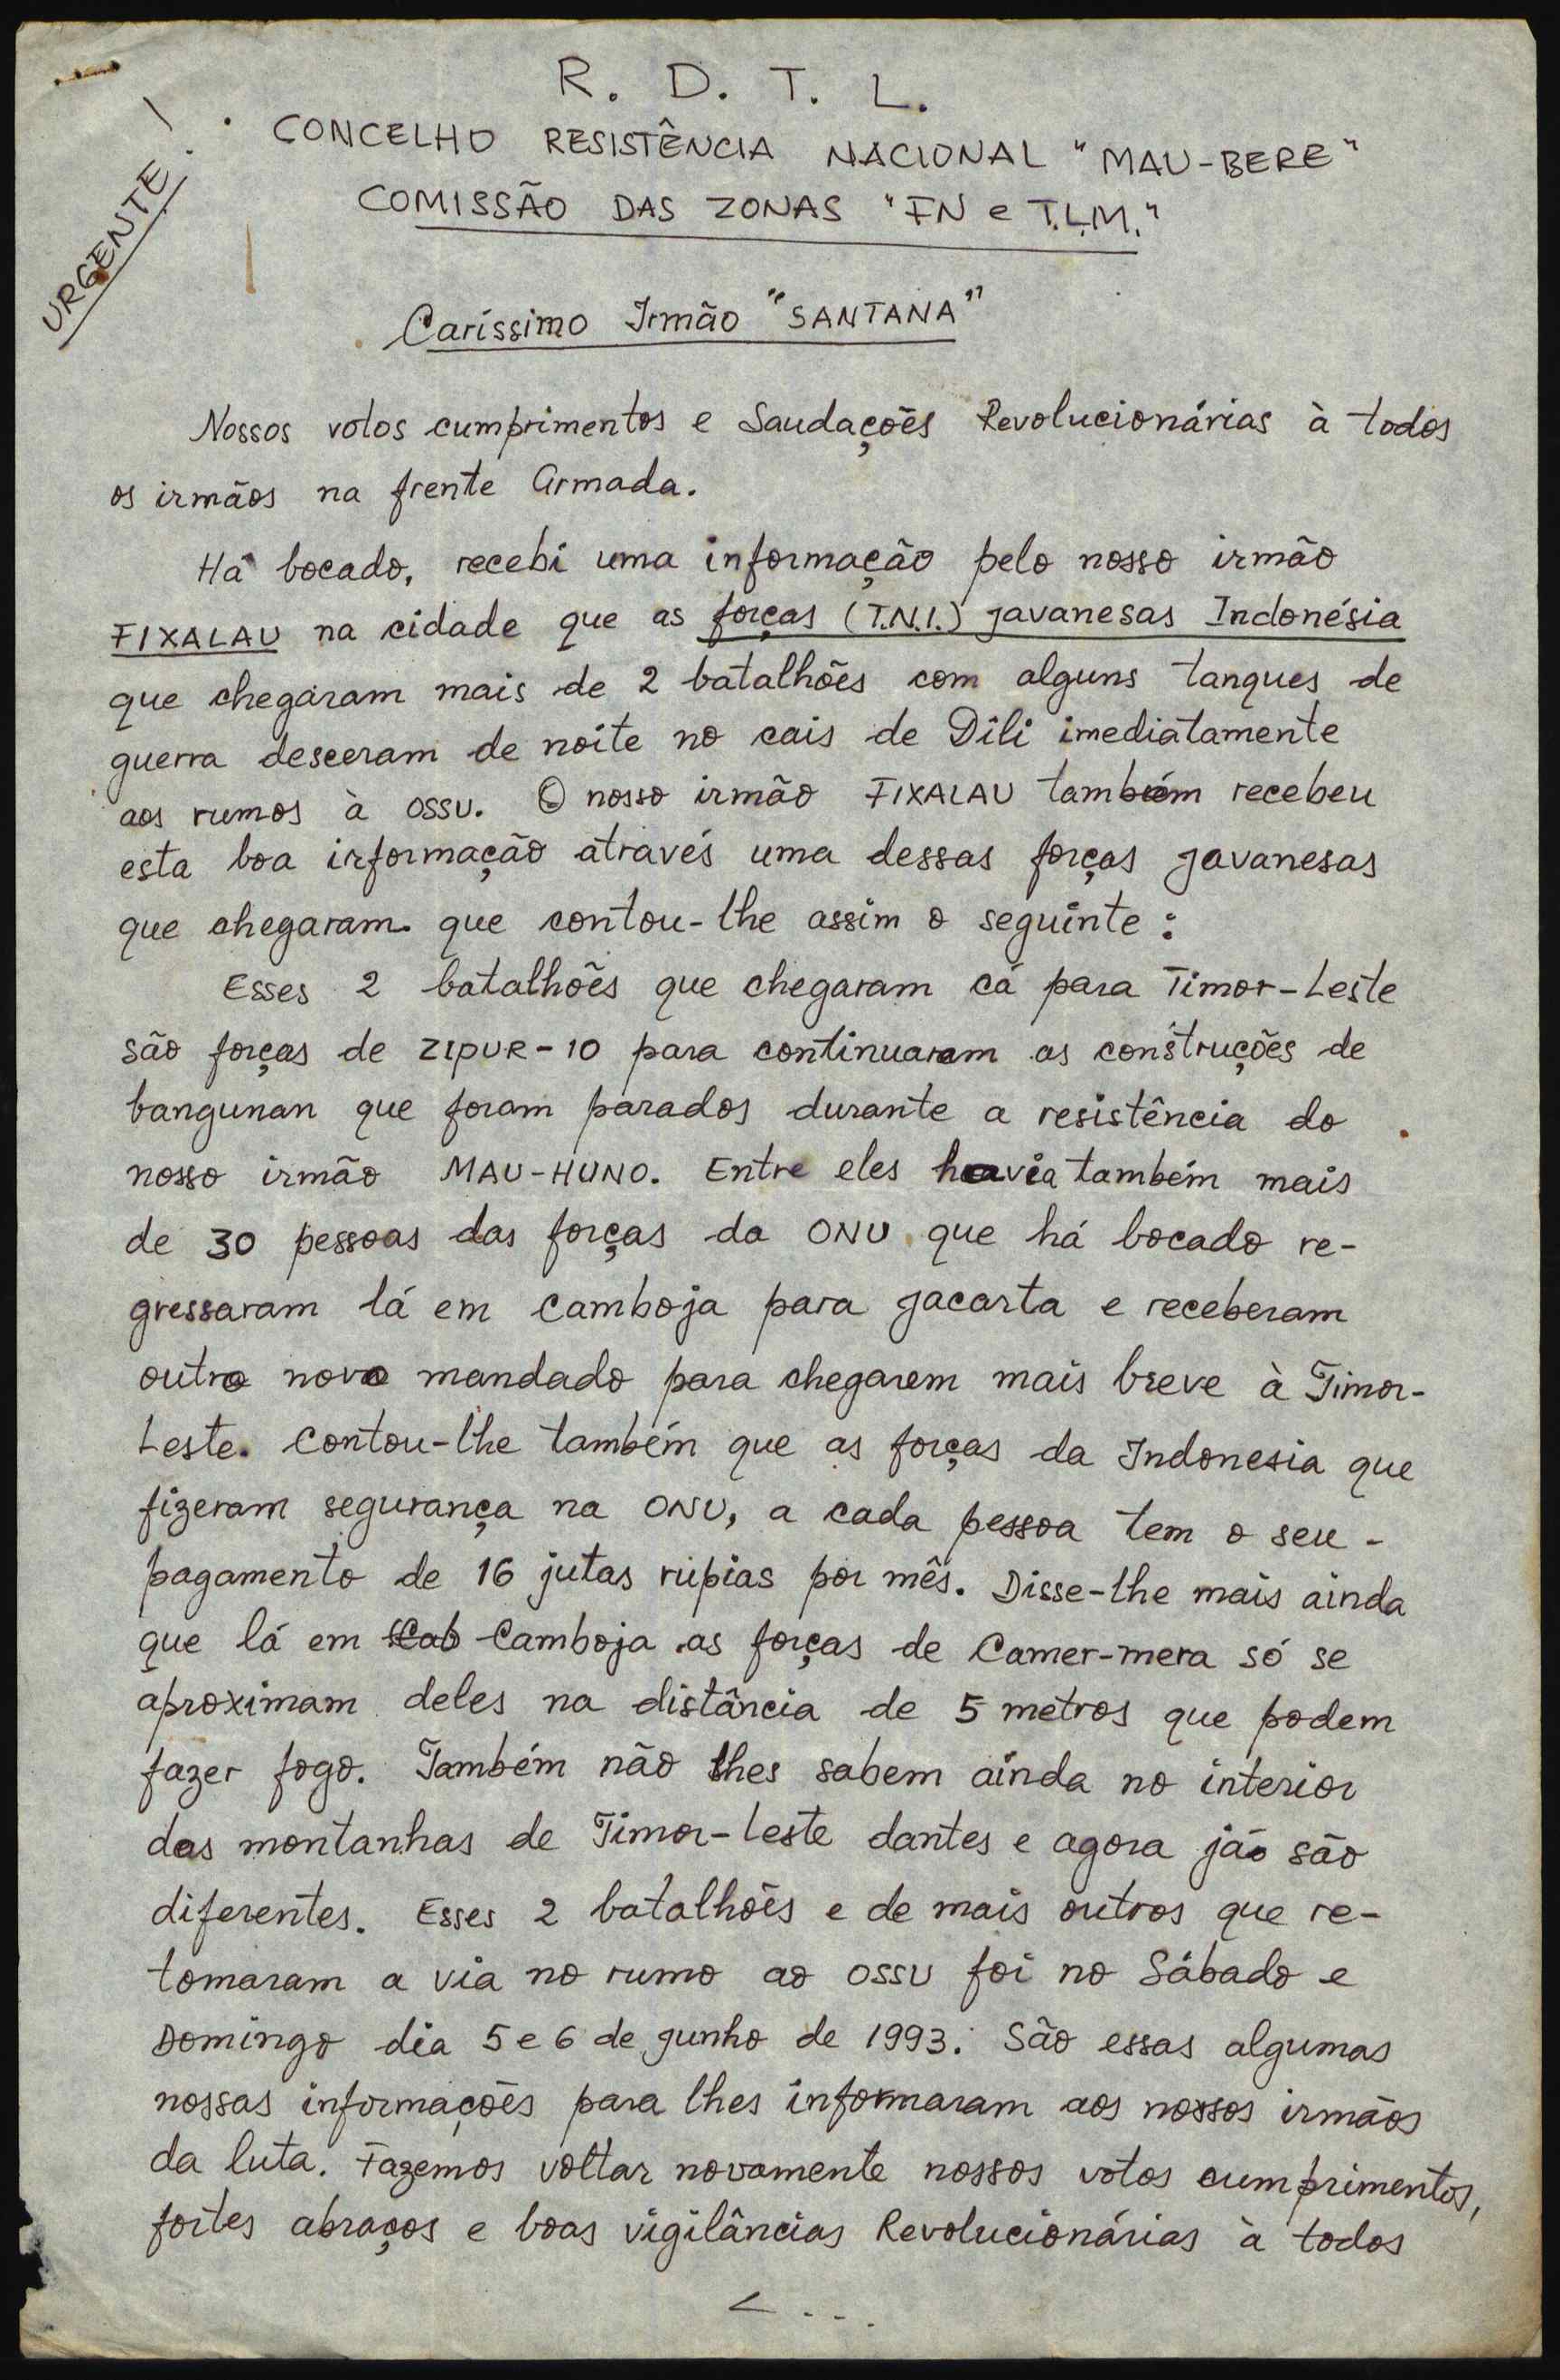 R. D. T. L.
URGENTE!
CONCELHO RESISTÊNCIA NACIONAL "MAU-BERE"
COMISSÃO DAS ZONAS "FN e T.L.M."
Caríssimo Irmão "SANTANA"
Nossos votos cumprimentos e Saudações Revolucionárias à todos
os irmãos na frente Armada.
Há bocado, recebi uma informação pelo nosso irmão
FIXALAU na cidade que as forças (T.N.I.) javanesas Indonésia
que chegaram mais de 2 batalhões com alguns tanques de
guerra desceram de noite no cais de Díli imediatamente
aos rumos à OSSU. O nosso irmão FIXALAU também recebeu
esta boa informação através uma dessas forças javanesas
que chegaram que contou-lhe assim o seguinte:
Esses 2 batalhões que chegaram cá para Timor-Leste
são forças de ZIPUR-10 para continuaram as construções de
bangunan que foram parados durante a resistência do
nosso irmão MAU-HUNO. Entre eles havia também mais
de 30 pessoas das forças da ONU que há bocado re-
gressaram lá em Camboja para Jacarta e receberam
outro novo mandado para chegarem mais breve à Timor-
Leste. Contou-lhe também que as forças da Indonesia que
fizeram segurança na ONU, a cada pessoa tem o seu -
pagamento de 16 jutas rúpias por mês. Disse-lhe mais ainda
que lá em Camboja as forças de Camer-mera só se
aproximam deles na distância de 5 metros que podem
fazer fogo. Também não lhes sabem ainda no interior
das montanhas de Timor-Leste dantes e agora jáo são
diferentes. Esses 2 batalhões e de mais outros que re-
tomaram a via no rumo ao OSSU foi no Sábado e
Domingo dia 5 e 6 de Junho de 1993. São essas algumas
nossas informações para lhes informaram aos nossos irmãos
da luta. Fazemos voltar novamente nossos votos cumprimentos,
fortes abraços e boas vigilâncias Revolucionárias à todos